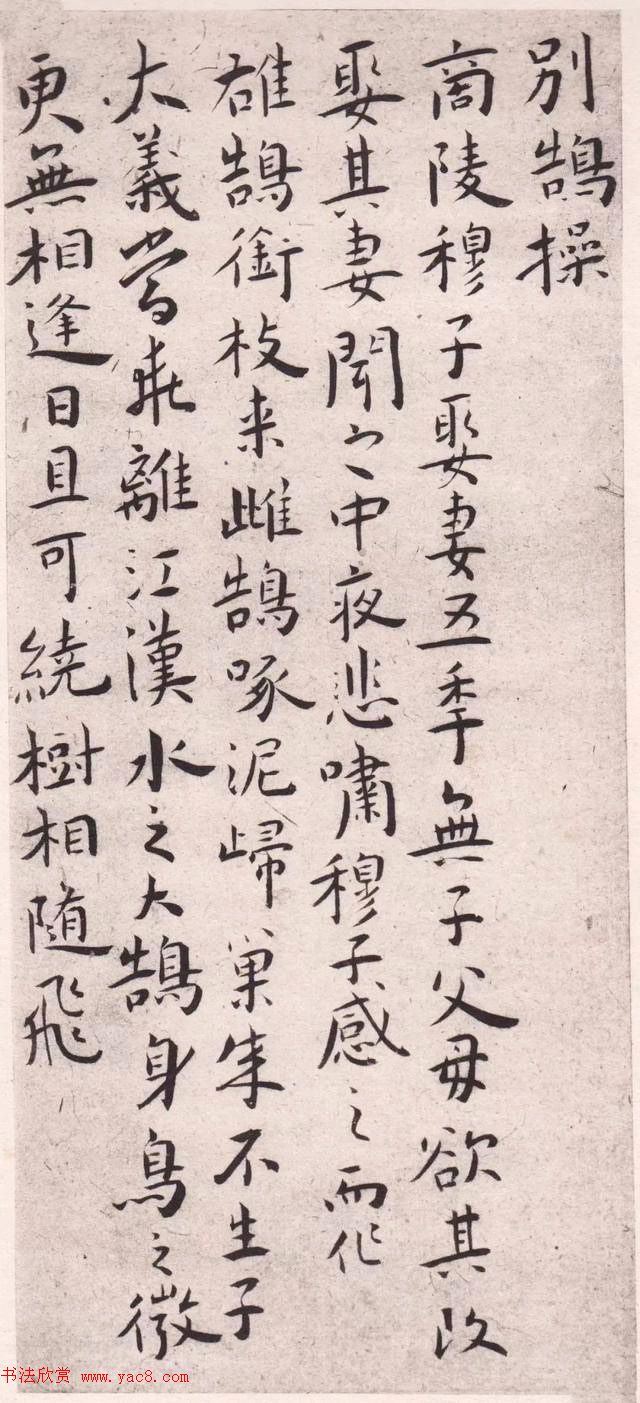 別鵠操
商陵穆子娶妻五年無子父母欲其改
娶其妻聞之中夜悲嘯穆子感之而作
雄鵠銜枝来雌鵠啄泥歸巢成不生子
大義當乖離江漢水之大鵠身鳥之微
更無相逢日且可繞樹相隨飛
书法欣赏 www.yac8.com